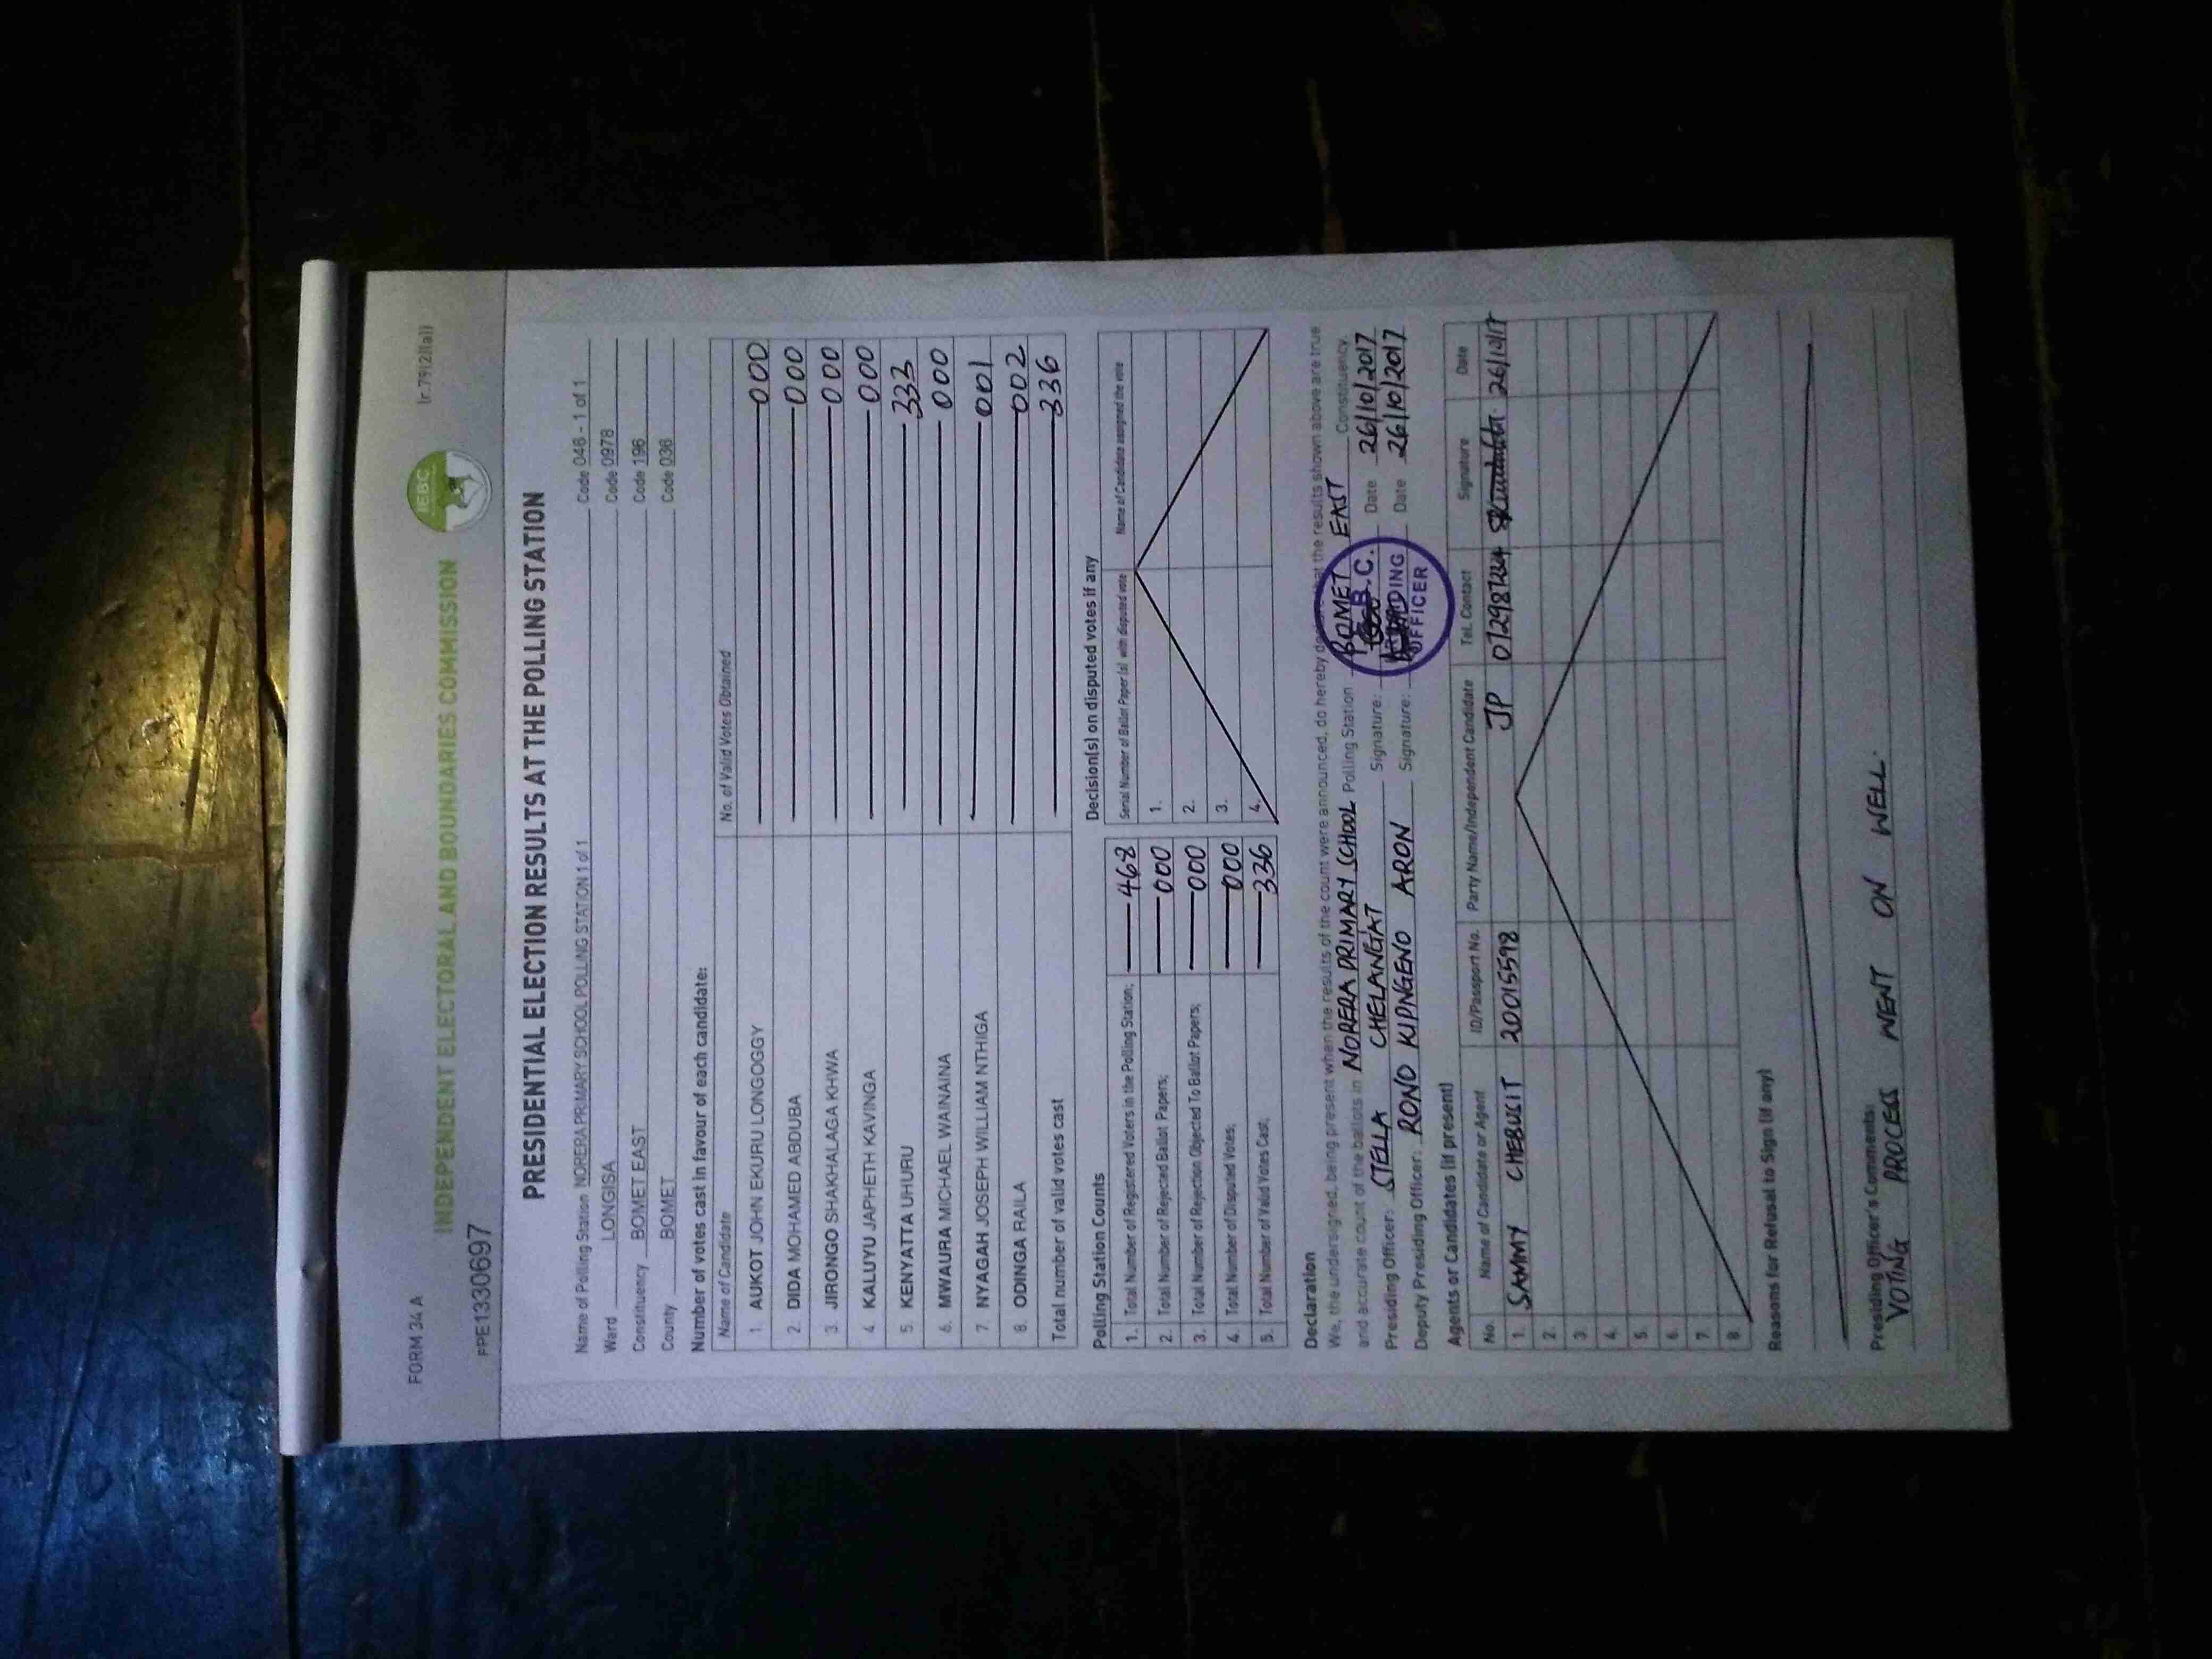 FORM 34 A
(r.79(2)(a))
INDEPENDENT ELECTORAL AND BOUNDARIES COMMISSION
IEBC
PPE1330697
PRESIDENTIAL ELECTION RESULTS AT THE POLLING STATION
Name of Polling Station NORERA PRIMARY SCHOOL POLLING STATION 1 of 1 Code 046 - 1 of 1
Ward LONGISA Code 0978
Constituency BOMET EAST Code 196
County BOMET Code 036
Number of votes cast in favour of each candidate:
Name of Candidate No. of Valid Votes Obtained
1. AUKOT JOHN EKURU LONGOGGY 000
2. DIDA MOHAMED ABDUBA 000
3. JIRONGO SHAKHALAGA KHWA 000
4. KALUYU JAPHETH KAVINGA 000
5. KENYATTA UHURU 333
6. MWAURA MICHAEL WAINAINA 000
7. NYAGAH JOSEPH WILLIAM NTHIGA 001
8. ODINGA RAILA 002
Total number of valid votes cast 336
Polling Station Counts
1. Total Number of Registered Voters in the Polling Station; 468
2. Total Number of Rejected Ballot Papers; 000
3. Total Number of Rejection Objected To Ballot Papers; 000
4. Total Number of Disputed Votes; 000
5. Total Number of Valid Votes Cast; 336
Decision(s) on disputed votes if any
Serial Number of Ballot Paper (s) with disputed vote Name of Candidate assigned the vote
1.
2.
3.
4.
Declaration
We, the undersigned, being present when the results of the count were announced, do hereby that the results shown above are true
and accurate count of the ballots in NORERA PRIMARY SCHOOL Polling Station BOMET EAST Constituency.
Presiding Officer: STELLA CHELANGAT Signature: Date 26/10/2017
Deputy Presiding Officer: RONO KIPNGENO ARON Signature: Date 26/10/2017
B.C.
OFFICER
Agents or Candidates (if present)
No. Name of Candidate or Agent ID/Passport No. Party Name/Independent Candidate Tel. Contact Signature Date
1. SAMMY CHEBUSIT 20015598 JP 26/10/17
2.
3.
4.
5.
6.
7.
8.
Reasons for Refusal to Sign (if any)
Presiding Officer's Comments:
VOTING PROCESS WENT ON WELL.